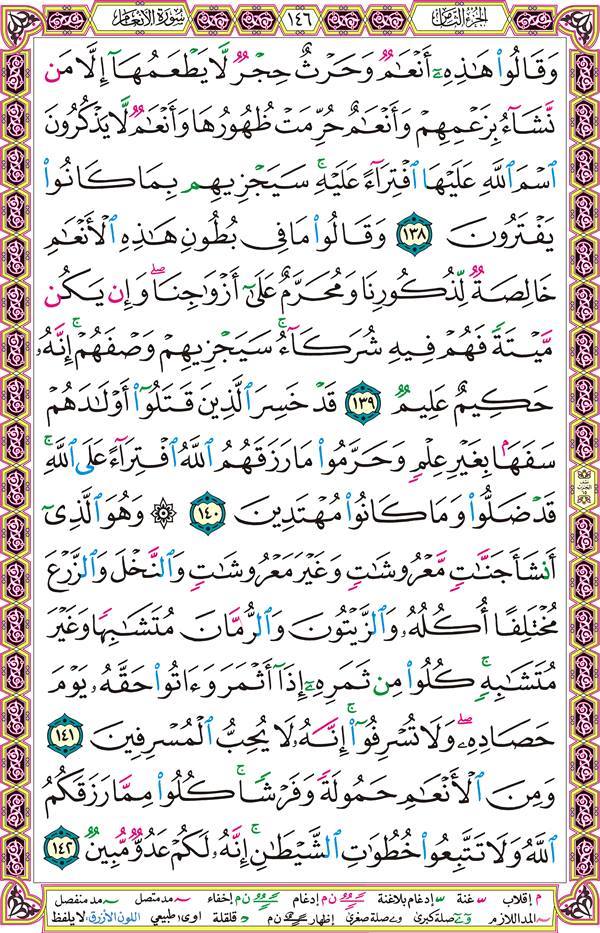 الجزء الثامن ١٤٦ سورة الأنعام
وَقَالُوا۟ هَـٰذِهِۦٓ أَنْعَـٰمٌ وَحَرْثٌ حِجْرٌ لَّا يَطْعَمُهَآ إِلَّا مَن
نَّشَآءُ بِزَعْمِهِمْ وَأَنْعَـٰمٌ حُرِّمَتْ ظُهُورُهَا وَأَنْعَـٰمٌ لَّا يَذْكُرُونَ
ٱسْمَ ٱللَّهِ عَلَيْهَا ٱفْتِرَآءً عَلَيْهِ ۚ سَيَجْزِيهِم بِمَا كَانُوا۟
يَفْتَرُونَ ١٣٨ وَقَالُوا۟ مَا فِى بُطُونِ هَـٰذِهِ ٱلْأَنْعَـٰمِ
خَالِصَةٌ لِّذُكُورِنَا وَمُحَرَّمٌ عَلَىٰٓ أَزْوَٰجِنَا ۖ وَإِن يَكُن
مَّيْتَةً فَهُمْ فِيهِ شُرَكَآءُ ۚ سَيَجْزِيهِمْ وَصْفَهُمْ ۚ إِنَّهُۥ
حَكِيمٌ عَلِيمٌ ١٣٩ قَدْ خَسِرَ ٱلَّذِينَ قَتَلُوٓا۟ أَوْلَـٰدَهُمْ
سَفَهًۢا بِغَيْرِ عِلْمٍ وَحَرَّمُوا۟ مَا رَزَقَهُمُ ٱللَّهُ ٱفْتِرَآءً عَلَى ٱللَّهِ ۚ
قَدْ ضَلُّوا۟ وَمَا كَانُوا۟ مُهْتَدِينَ ١٤٠ ۞ وَهُوَ ٱلَّذِىٓ
أَنشَأَ جَنَّـٰتٍ مَّعْرُوشَـٰتٍ وَغَيْرَ مَعْرُوشَـٰتٍ وَٱلنَّخْلَ وَٱلزَّرْعَ
مُخْتَلِفًا أُكُلُهُۥ وَٱلزَّيْتُونَ وَٱلرُّمَّانَ مُتَشَـٰبِهًا وَغَيْرَ
مُتَشَـٰبِهٍ ۚ كُلُوا۟ مِن ثَمَرِهِۦٓ إِذَآ أَثْمَرَ وَءَاتُوا۟ حَقَّهُۥ يَوْمَ
حَصَادِهِۦ ۖ وَلَا تُسْرِفُوٓا۟ ۚ إِنَّهُۥ لَا يُحِبُّ ٱلْمُسْرِفِينَ ١٤١
وَمِنَ ٱلْأَنْعَـٰمِ حَمُولَةً وَفَرْشًا ۚ كُلُوا۟ مِمَّا رَزَقَكُمُ
ٱللَّهُ وَلَا تَتَّبِعُوا۟ خُطُوَٰتِ ٱلشَّيْطَـٰنِ ۚ إِنَّهُۥ لَكُمْ عَدُوٌّ مُّبِينٌ ١٤٢
م إقلاب غنة إدغام بلاغنة ن م إدغام ن م إخفاء مد متصل مد منفصل
المد اللازم صلة كبرى صلة صغرى إظهار ن م قلقلة اوى طبيعي اللون الأزرق لا يلفظ